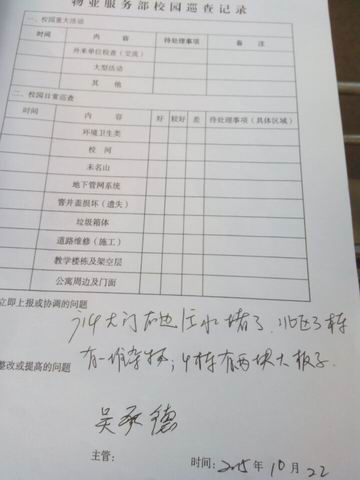 物业服务部校园巡查记录
一、校园重大活动
时间 内容 待处理事项 备注
外来单位检查（交流）
大型活动
其他
二、校园日常巡查
时间 内容 好 较好 差 待处理事项（具体区域）
环境卫生类
校河
未名山
地下管网系统
窨井盖损坏（遗失）
垃圾箱体
道路维修（施工）
教学楼栋及架空层
公寓周边及门面
立即上报或协调的问题
大门右边 水堵了.
有一堆杂物；4栋有两块大板子.
整改或提高的问题
吴 德
主管： 时间：2015年10月22